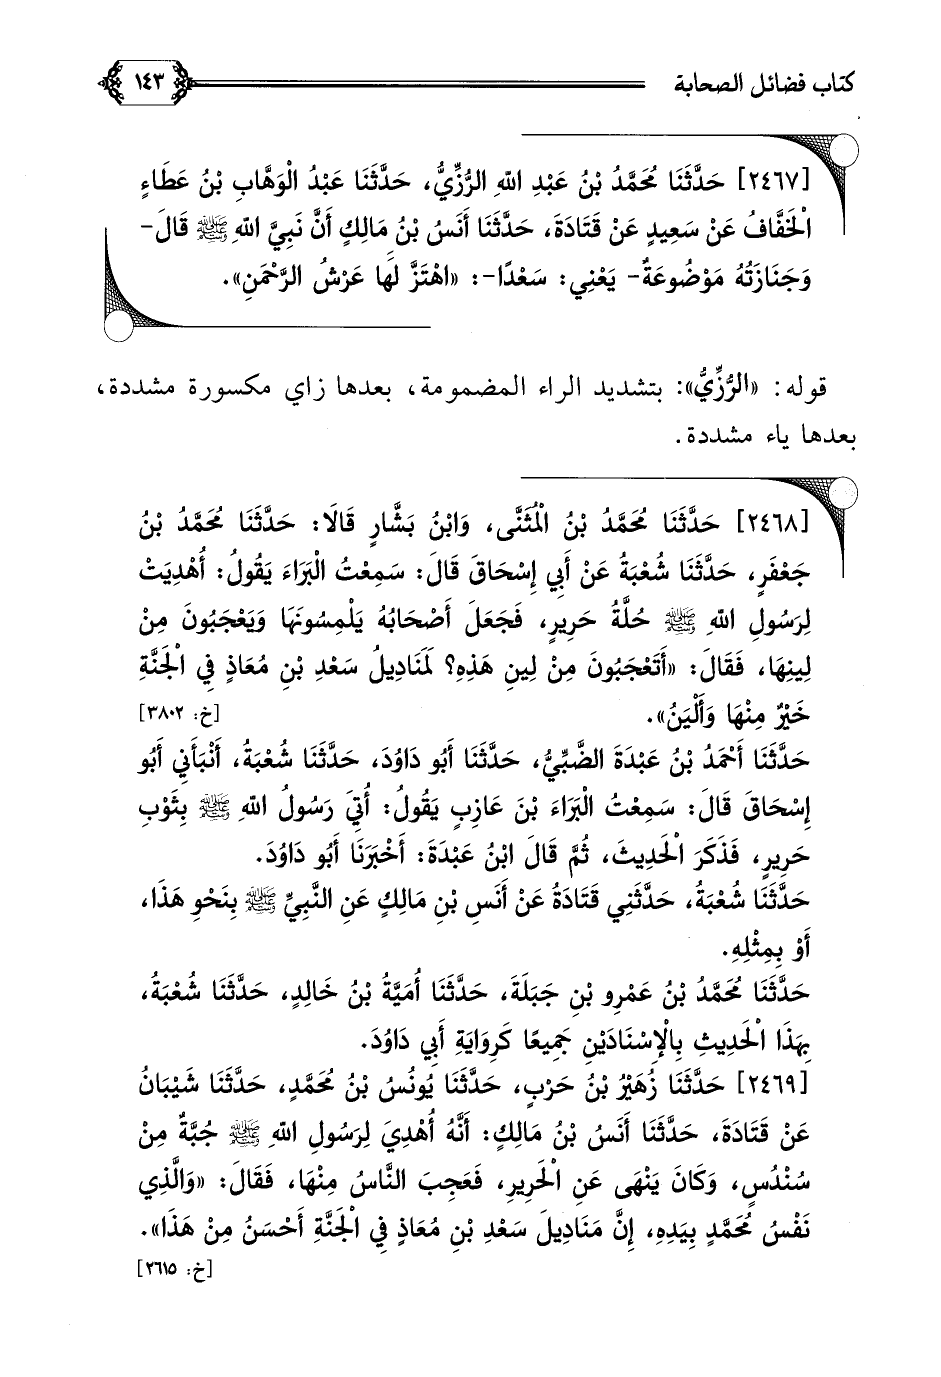 كتاب فضائل الصحابة ١٤٣
[٢٤٦٧] حَدَّثَنَا مُحَمَّدُ بْنُ عَبْدِ اللهِ الرُّزِّيُّ، حَدَّثَنَا عَبْدُ الْوَهَّابِ بْنُ عَطَاءٍ
الْخَفَّافُ عَنْ سَعِيدٍ عَنْ قَتَادَةَ، حَدَّثَنَا أَنَسُ بْنُ مَالِكٍ أَنَّ نَبِيَّ اللهِ ﷺ قَالَ -
وَجَنَازَتُهُ مَوْضُوعَةٌ- يَعْنِي: سَعْدًا-: «اهْتَزَّ لَهَا عَرْشُ الرَّحْمَنِ».
قوله: «الرُّزِّيُّ»: بتشديد الراء المضمومة، بعدها زاي مكسورة مشددة،
بعدها ياء مشددة.
[٢٤٦٨] حَدَّثَنَا مُحَمَّدُ بْنُ الْمُثَنَّى، وَابْنُ بَشَّارٍ قَالَا: حَدَّثَنَا مُحَمَّدُ بْنُ
جَعْفَرٍ، حَدَّثَنَا شُعْبَةُ عَنْ أَبِي إِسْحَاقَ قَالَ: سَمِعْتُ الْبَرَاءَ يَقُولُ: أُهْدِيَتْ
لِرَسُولِ اللهِ ﷺ حُلَّةُ حَرِيرٍ، فَجَعَلَ أَصْحَابُهُ يَلْمِسُونَهَا وَيَعْجَبُونَ مِنْ
لِينِهَا، فَقَالَ: «أَتَعْجَبُونَ مِنْ لِينِ هَذِهِ؟ لَمَنَادِيلُ سَعْدِ بْنِ مُعَاذٍ فِي الْجَنَّةِ
خَيْرٌ مِنْهَا وَأَلْيَنُ». [خ: ٣٨٠٢]
حَدَّثَنَا أَحْمَدُ بْنُ عَبْدَةَ الضَّبِّيُّ، حَدَّثَنَا أَبُو دَاوُدَ، حَدَّثَنَا شُعْبَةُ، أَنْبَأَنِي أَبُو
إِسْحَاقَ قَالَ: سَمِعْتُ الْبَرَاءَ بْنَ عَازِبٍ يَقُولُ: أُتِيَ رَسُولُ اللهِ ﷺ بِثَوْبِ
حَرِيرٍ، فَذَكَرَ الْحَدِيثَ، ثُمَّ قَالَ ابْنُ عَبْدَةَ: أَخْبَرَنَا أَبُو دَاوُدَ.
حَدَّثَنَا شُعْبَةُ، حَدَّثَنِي قَتَادَةُ عَنْ أَنَسِ بْنِ مَالِكٍ عَنِ النَّبِيِّ ﷺ بِنَحْوِ هَذَا،
أَوْ بِمِثْلِهِ.
حَدَّثَنَا مُحَمَّدُ بْنُ عَمْرِو بْنِ جَبَلَةَ، حَدَّثَنَا أُمَيَّةُ بْنُ خَالِدٍ، حَدَّثَنَا شُعْبَةُ،
بِهَذَا الْحَدِيثِ بِالْإِسْنَادَيْنِ جَمِيعًا كَرِوَايَةِ أَبِي دَاوُدَ.
[٢٤٦٩] حَدَّثَنَا زُهَيْرُ بْنُ حَرْبٍ، حَدَّثَنَا يُونُسُ بْنُ مُحَمَّدٍ، حَدَّثَنَا شَيْبَانُ
عَنْ قَتَادَةَ، حَدَّثَنَا أَنَسُ بْنُ مَالِكٍ: أَنَّهُ أُهْدِيَ لِرَسُولِ اللهِ ﷺ جُبَّةٌ مِنْ
سُنْدُسٍ، وَكَانَ يَنْهَى عَنِ الْحَرِيرِ، فَعَجِبَ النَّاسُ مِنْهَا، فَقَالَ: «وَالَّذِي
نَفْسُ مُحَمَّدٍ بِيَدِهِ، إِنَّ مَنَادِيلَ سَعْدِ بْنِ مُعَاذٍ فِي الْجَنَّةِ أَحْسَنُ مِنْ هَذَا».
[خ: ٢٦١٥]